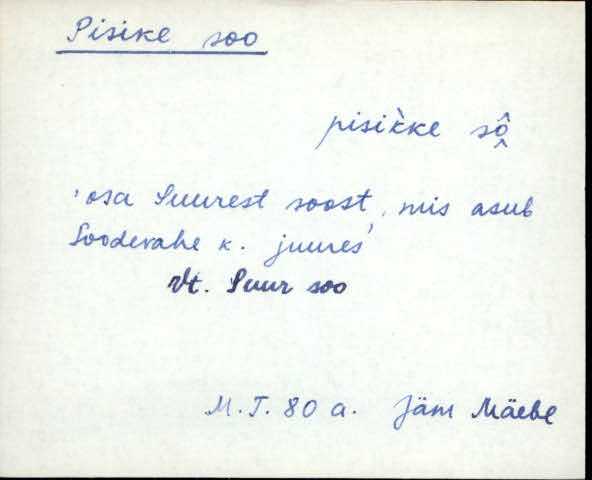 Pisike soo
pisi`kke sô̭
'osa Suurest soost, mis asub
Soodevahe k. juures'
Vt. Suur soo
M.T. 80 a. Jäm Mäebe